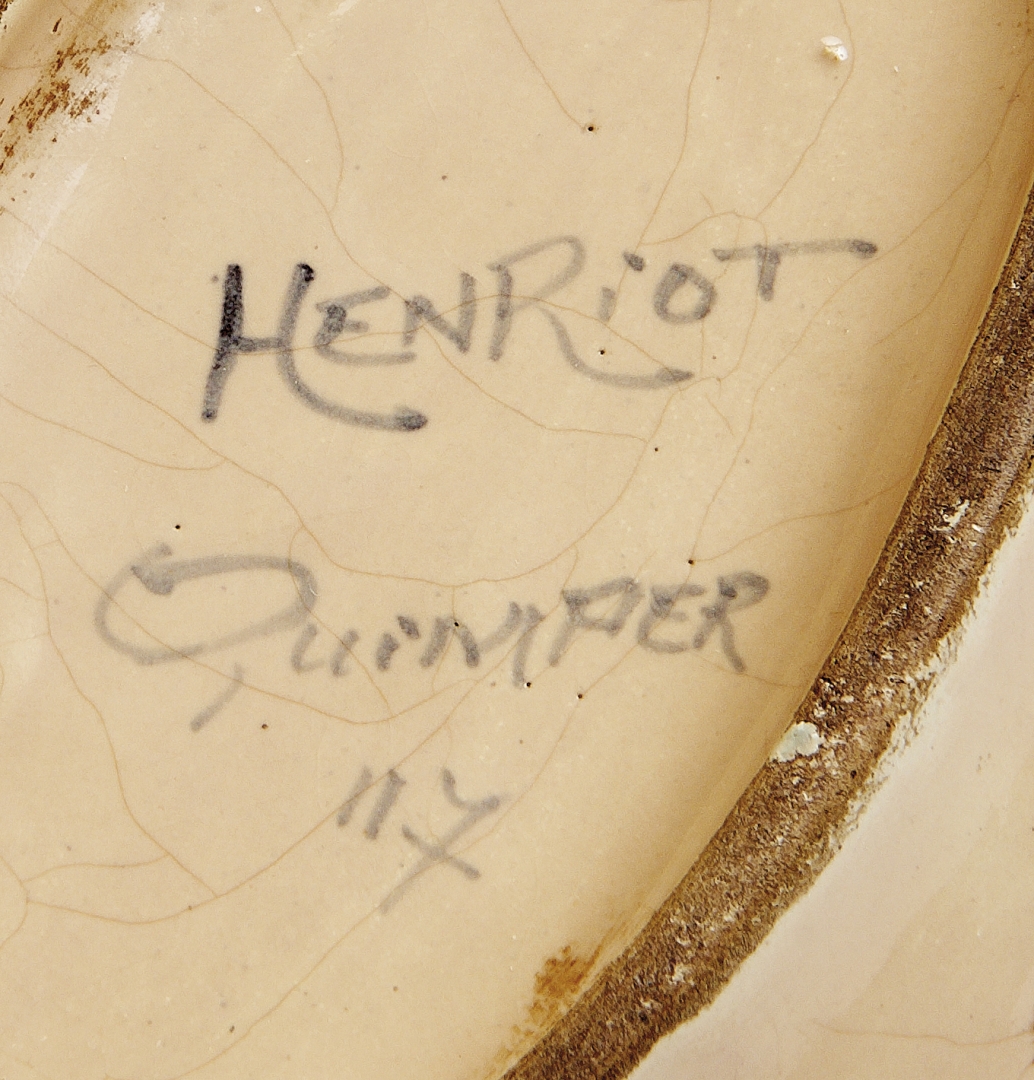 HENRIOT
QUIMPER
117